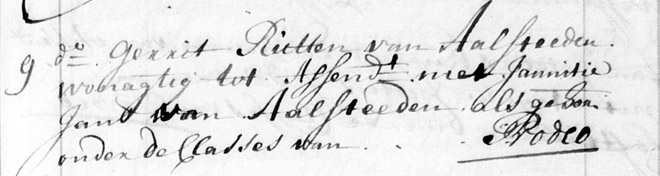 9 do. Gerrit Ritten van Aalsteeden.
woonagtig tot Assendt met Jannitie
Jans van Aalsteeden als gehoor:
onder de Classes van . . P: Podeo